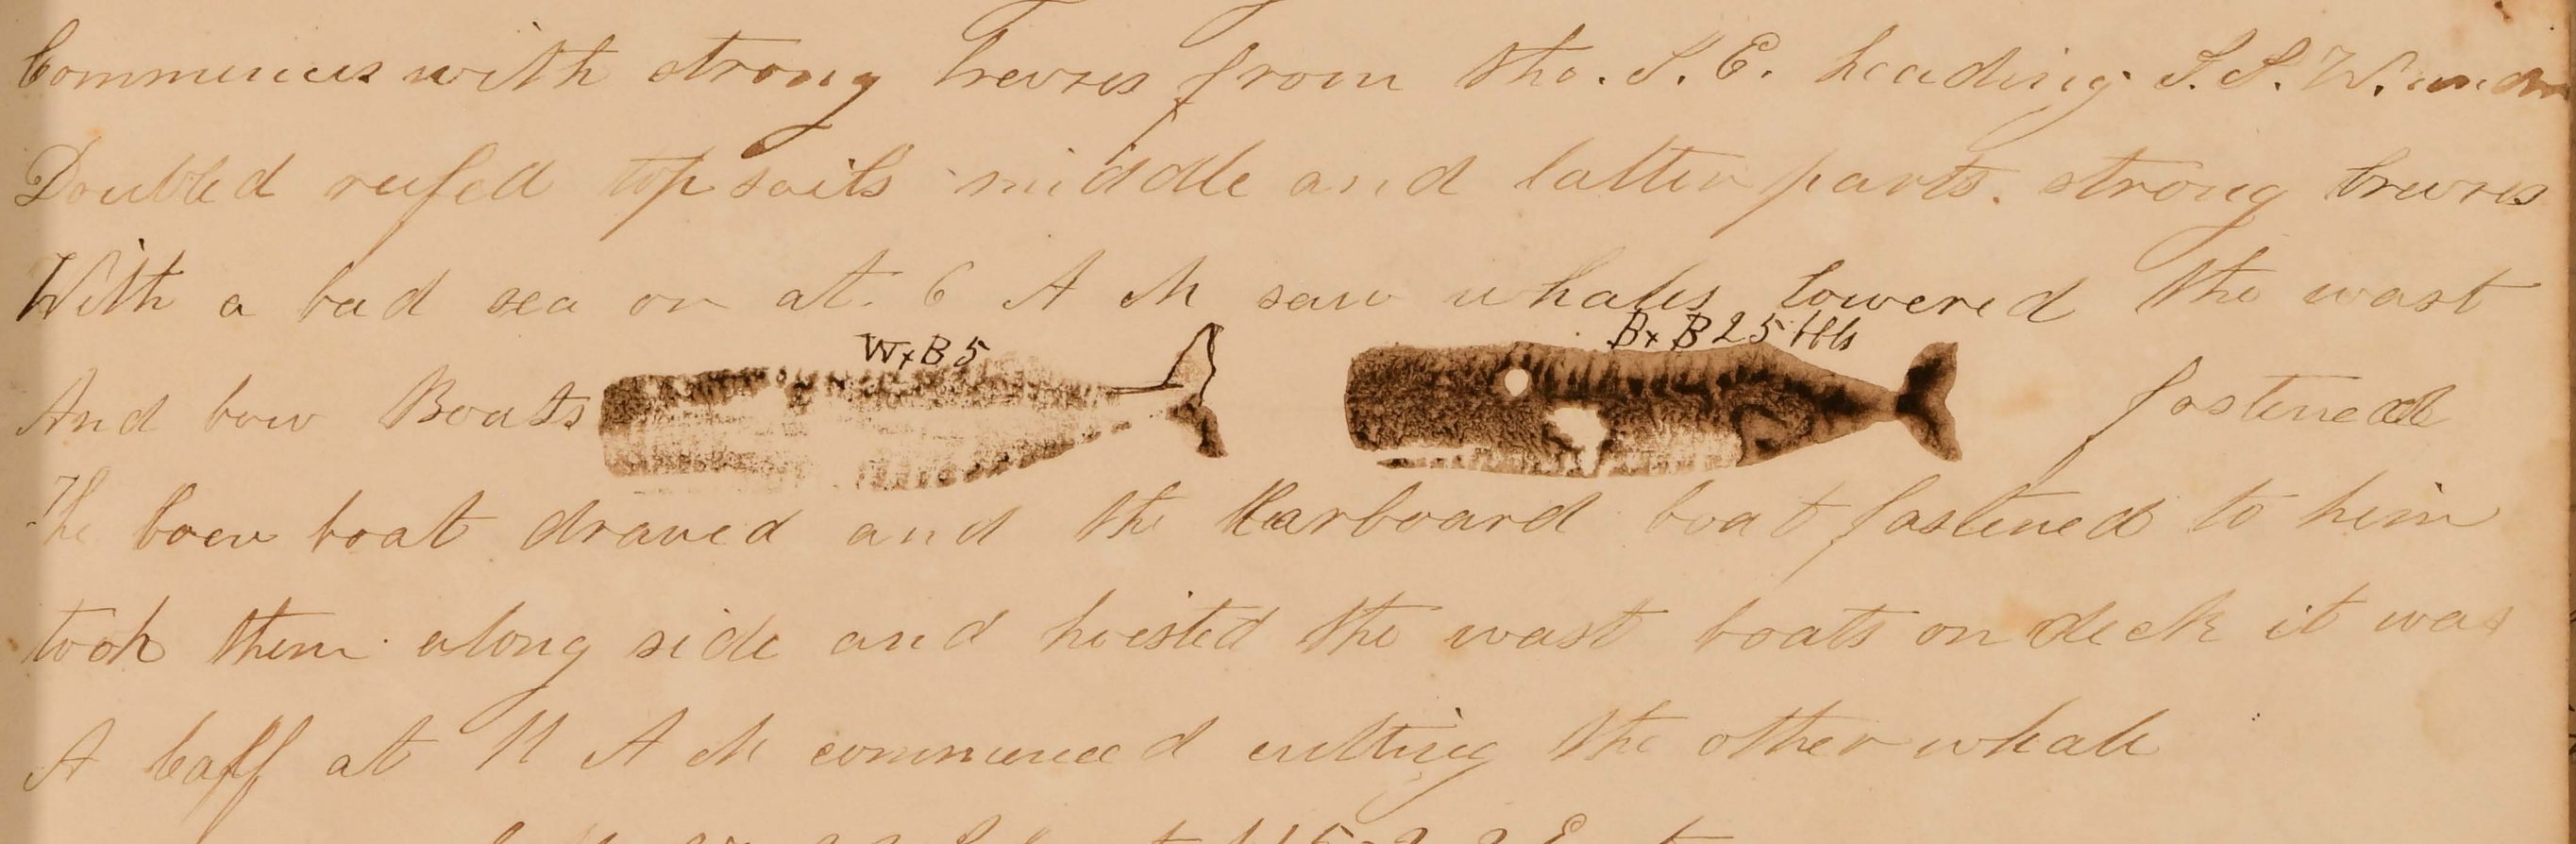 Commences with strong brevses from the. S. E. heading S. S. W. under
Doubled reefed top sails middle and latter parts. strong brevses
With a bad sea on at. 6 A M saw whales lowered the wast
W x B 5
B x B 25 bbls
And bow Boats fastened
The bow boat drawed and the larboard boat fastened to him
took them along side and hoisted the wast boats on deck it was
A Caff at 11 A M commenced cutting the other whale